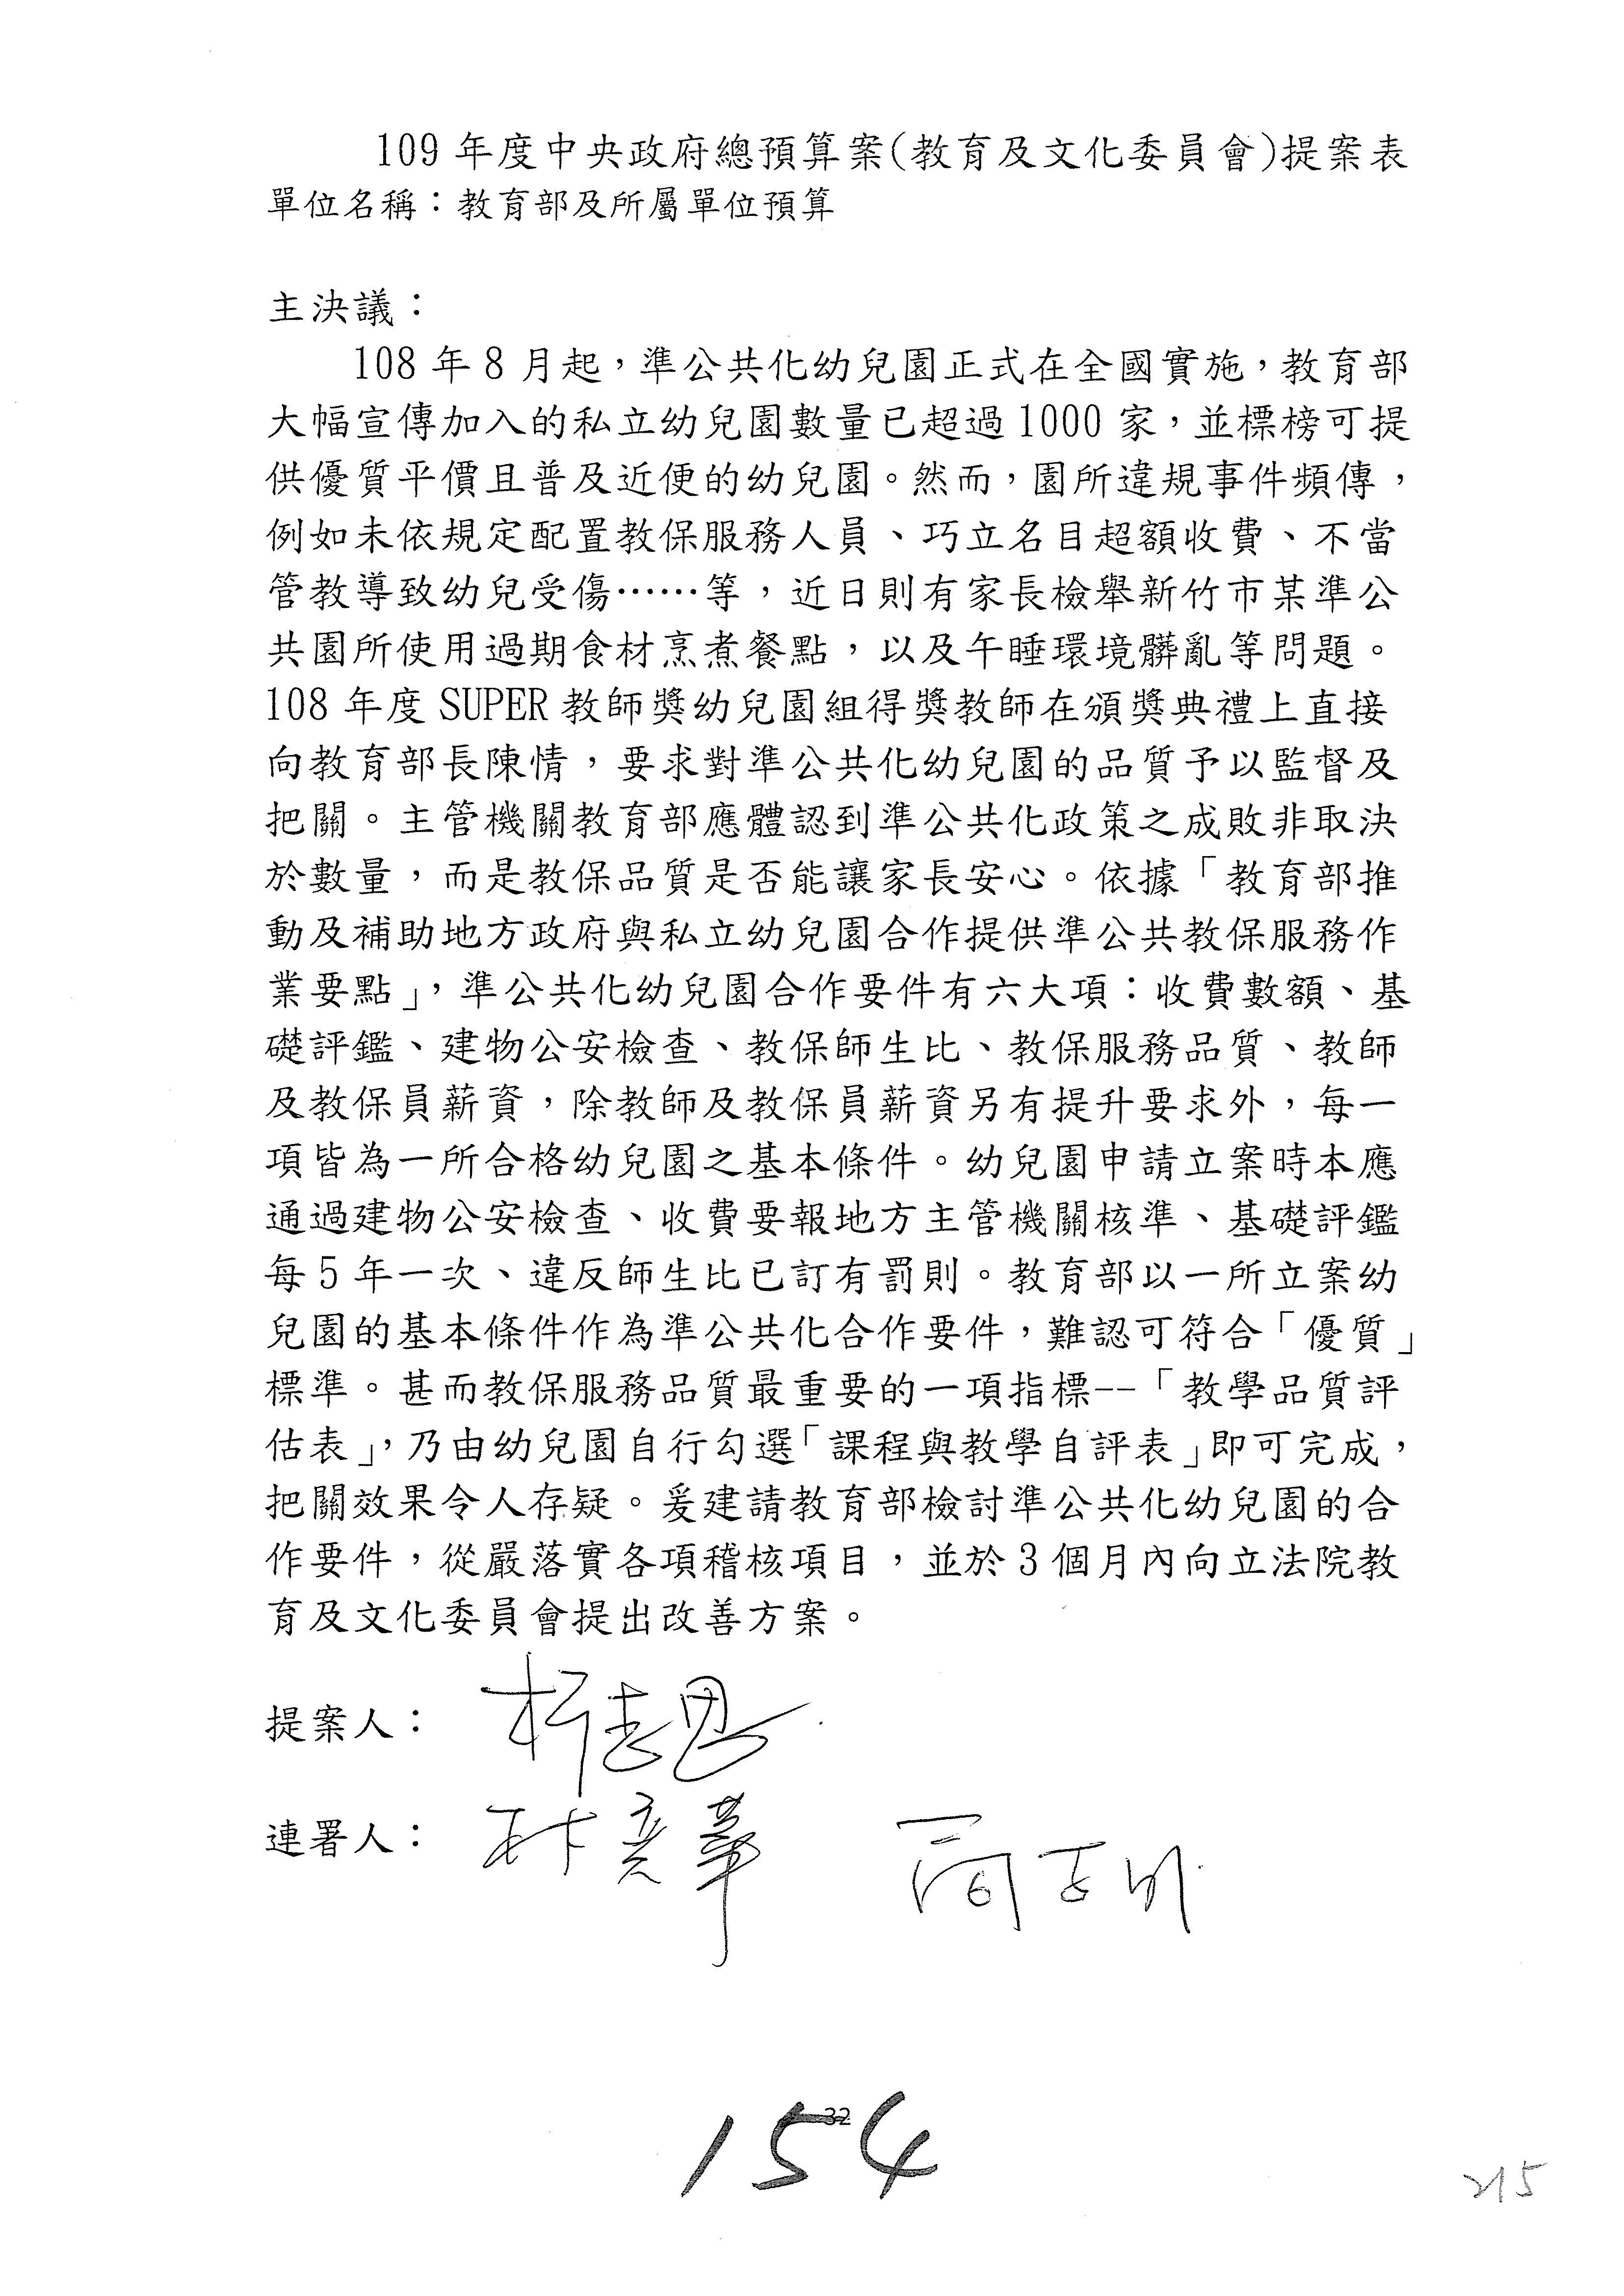 109 年度中央政府總預算案(教育及文化委員會)提案表
單位名稱：教育部及所屬單位預算
主決議：
108 年 8 月起，準公共化幼兒園正式在全國實施，教育部
大幅宣傳加入的私立幼兒園數量已超過 1000 家，並標榜可提
供優質平價且普及近便的幼兒園。然而，園所違規事件頻傳，
例如未依規定配置教保服務人員、巧立名目超額收費、不當
管教導致幼兒受傷……等，近日則有家長檢舉新竹市某準公
共園所使用過期食材烹煮餐點，以及午睡環境髒亂等問題。
108 年度 SUPER 教師獎幼兒園組得獎教師在頒獎典禮上直接
向教育部長陳情，要求對準公共化幼兒園的品質予以監督及
把關。主管機關教育部應體認到準公共化政策之成敗非取決
於數量，而是教保品質是否能讓家長安心。依據「教育部推
動及補助地方政府與私立幼兒園合作提供準公共教保服務作
業要點」，準公共化幼兒園合作要件有六大項：收費數額、基
礎評鑑、建物公安檢查、教保師生比、教保服務品質、教師
及教保員薪資，除教師及教保員薪資另有提升要求外，每一
項皆為一所合格幼兒園之基本條件。幼兒園申請立案時本應
通過建物公安檢查、收費要報地方主管機關核準、基礎評鑑
每 5 年一次、違反師生比已訂有罰則。教育部以一所立案幼
兒園的基本條件作為準公共化合作要件，難認可符合「優質」
標準。甚而教保服務品質最重要的一項指標--「教學品質評
估表」，乃由幼兒園自行勾選「課程與教學自評表」即可完成，
把關效果令人存疑。爰建請教育部檢討準公共化幼兒園的合
作要件，從嚴落實各項稽核項目，並於 3 個月內向立法院教
育及文化委員會提出改善方案。
提案人：柯志恩
連署人：
32
154
215